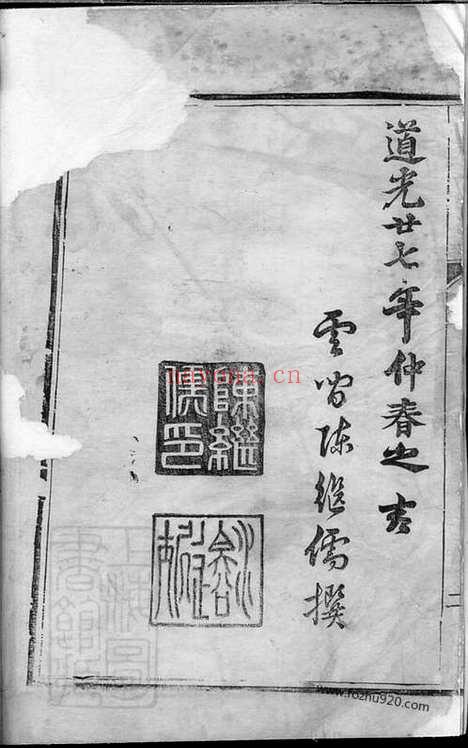 道光廿七年仲春之吉
雲間陳繼儒撰
陳繼
儒印
二
nayona.cn
www.fozhu920.com